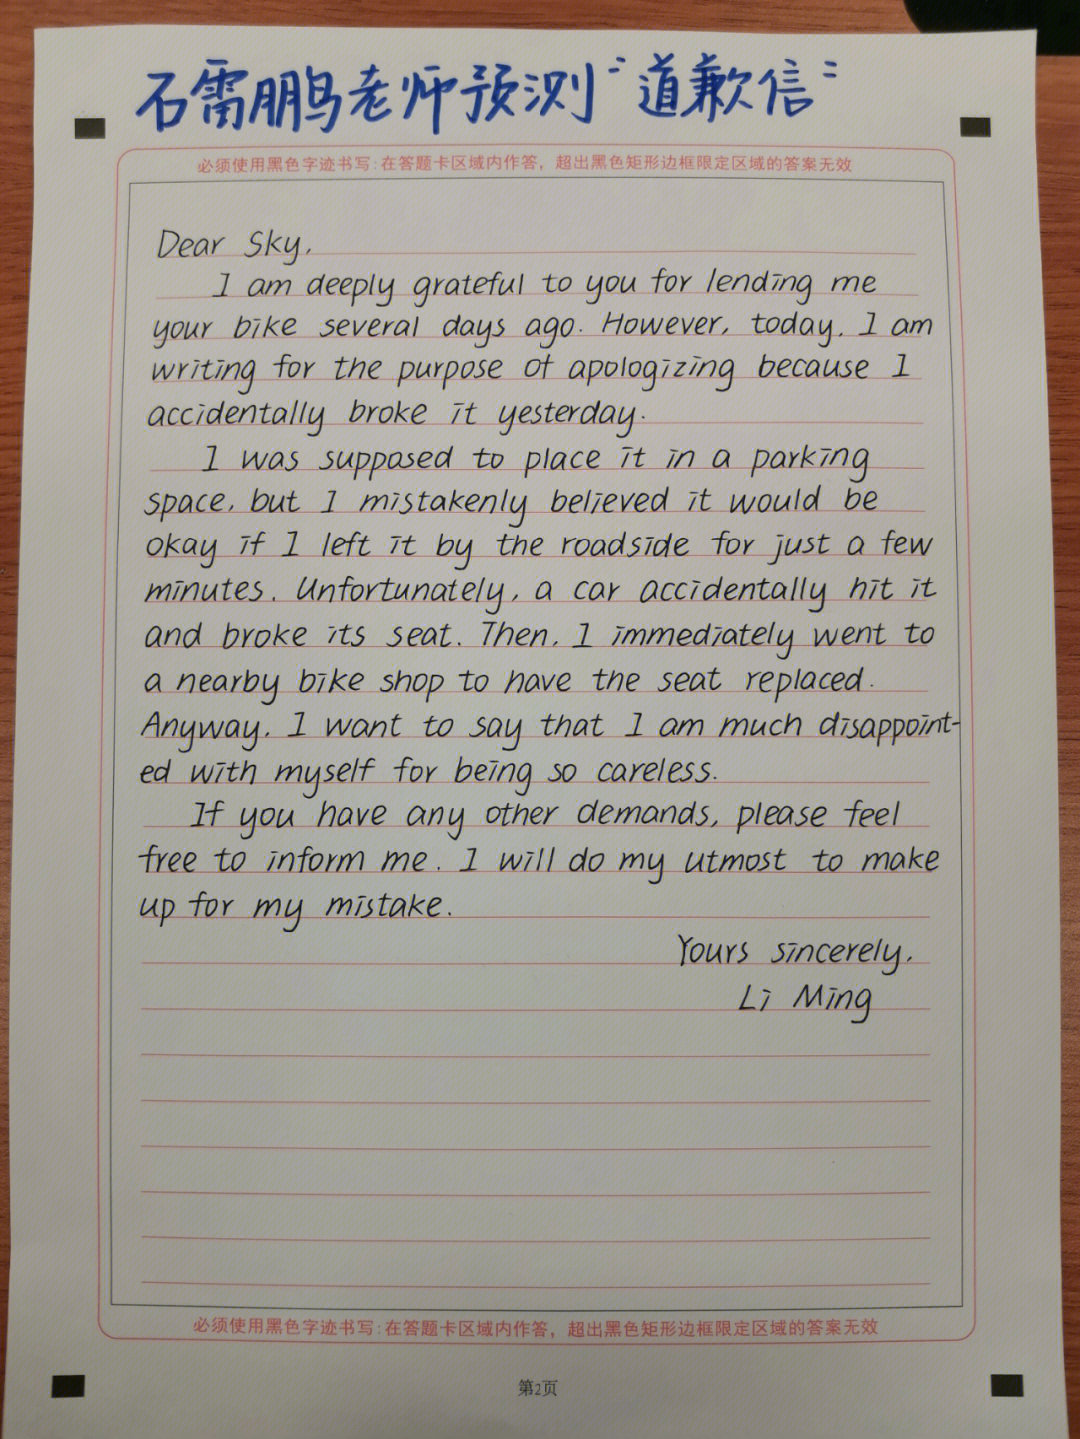 石雷鹏老师预测"道歉信"
必须使用黑色字迹书写:在答题卡区域内作答，超出黑色矩形边框限定区域的答案无效
Dear Sky,
I am deeply grateful to you for lending me
your bike several days ago. However, today, I am
writing for the purpose of apologizing because I
accidentally broke it yesterday.
I was supposed to place it in a parking
space, but I mistakenly believed it would be
okay if I left it by the roadside for just a few
minutes. Unfortunately, a car accidentally hit it
and broke its seat. Then, I immediately went to
a nearby bike shop to have the seat replaced.
Anyway, I want to say that I am much disappoint-
ed with myself for being so careless.
If you have any other demands, please feel
free to inform me. I will do my utmost to make
up for my mistake.
Yours sincerely,
Li Ming
必须使用黑色字迹书写:在答题卡区域内作答，超出黑色矩形边框限定区域的答案无效
第2页